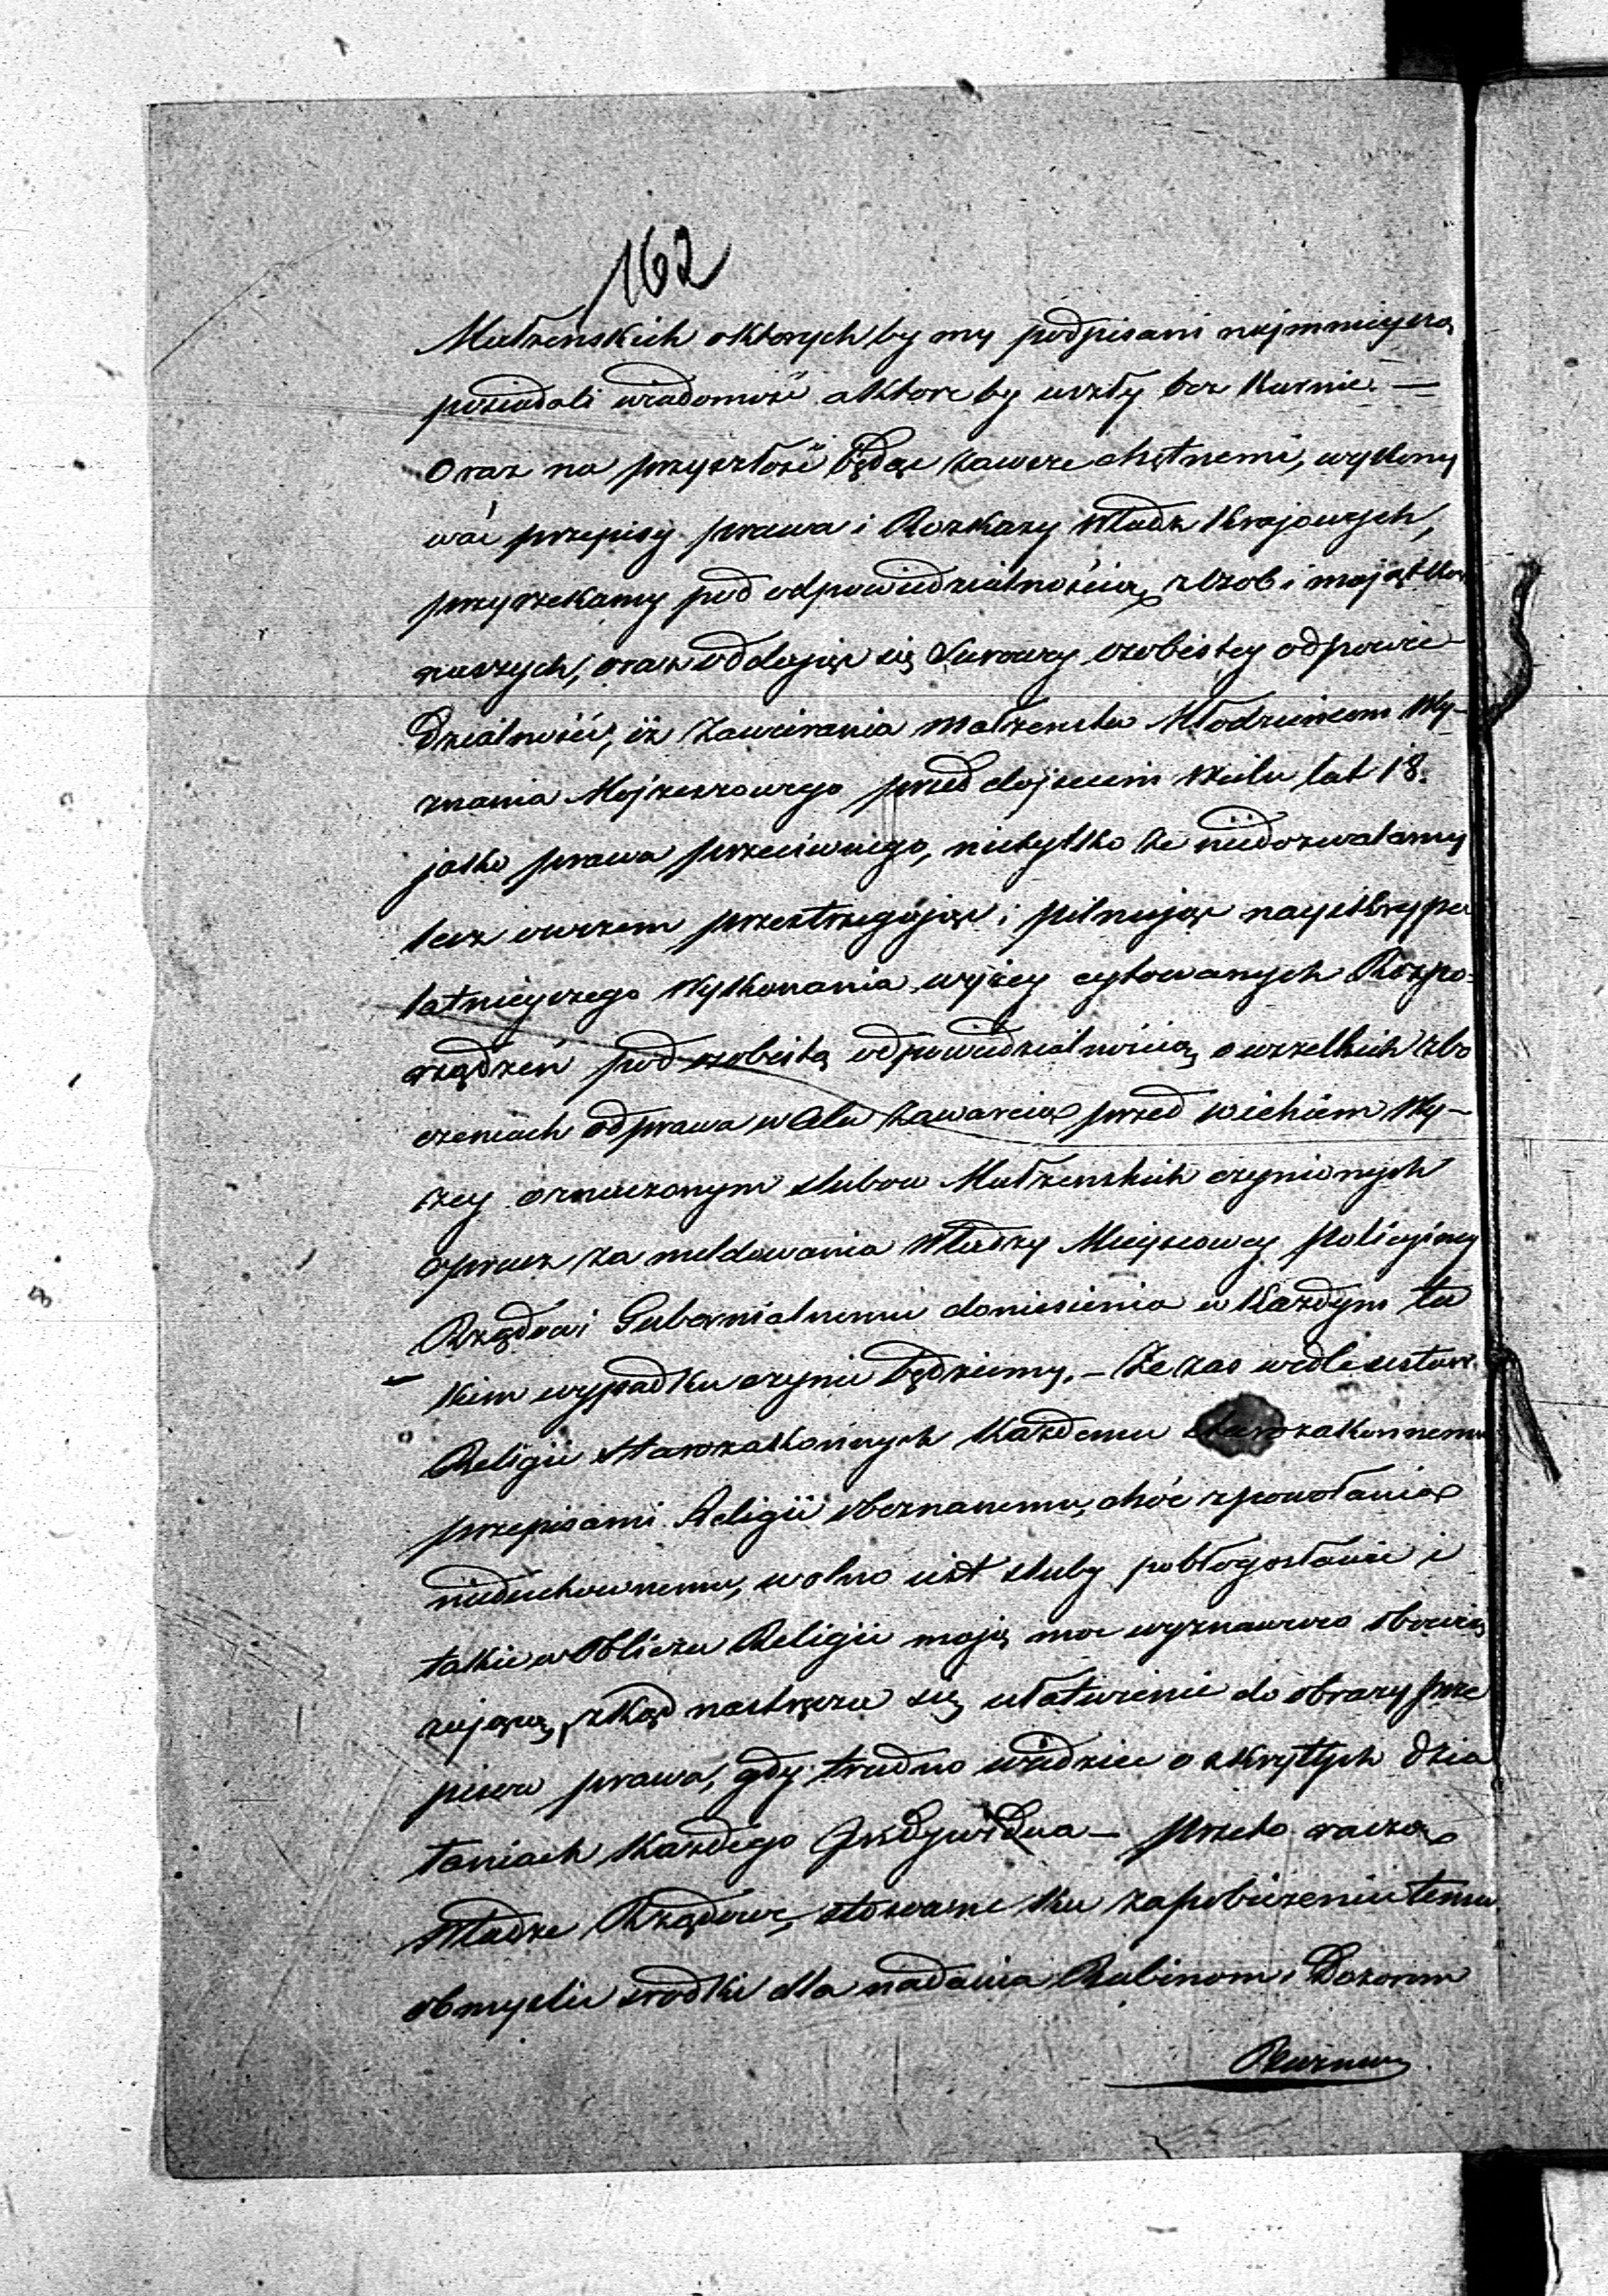 162
Małżenskich o ktorych by my podpisani najmnieyszą
posiadali wiadomość a ktore by uszły bez karnie. —
Oraz na przyszłość będąc zawsze chętnemi, wykony
wać przepisy prawa i Rozkazy Władz Krajowych,
przyrzekamy pod odpowiedzialnością z osob i majątkow
naszych, oraz oddając się Surowey osobistey odpowie
dzialność, iż zawierania Małżenstw Młodzieńcom Wy-
znania Mojżeszowego przed dojściem wieku lat 18.
jako prawu przeciwnego, nietylko że niedozwalamy
lecz owszem przestrzegając i pilnując nayskrypu
latnieyszego wykonania wyżey cytowanych Rozpo-
rządzeń pod osobistą odpowiedzialnością o wszelkich zbo
czeniach od prawa w celu zawarcia przed wiekiem Wy-
żey oznaczonym slubow Małżenskich czynionych
oprocz za meldowania Władzy Mieyscowey Policyjney
Rządowi Gubernialnemu doniesienia w każdym ta
kim wypadku czynić będziemy. — Że zas wedle ustaw
Religii Starozakonnych każdemu starozakonnemu
przepisami Religii obeznanemu, choć z powołania
nieduchownemu, wolno iest sluby pobłogosławić i
takie w obliczu Religii mają moc wyznawcow obowią
zującą, zkąd nastręcza się ułatwienie do obrazy prze
pisow prawa, gdy trudno wiedzieć o skrytych dzia
łaniach każdego Indywidua — przeto raczą
Władze Rządowe, stosowne ku zapobieżeniu temu
obmyslić srodki dla nadania Rabinom i Dozorom